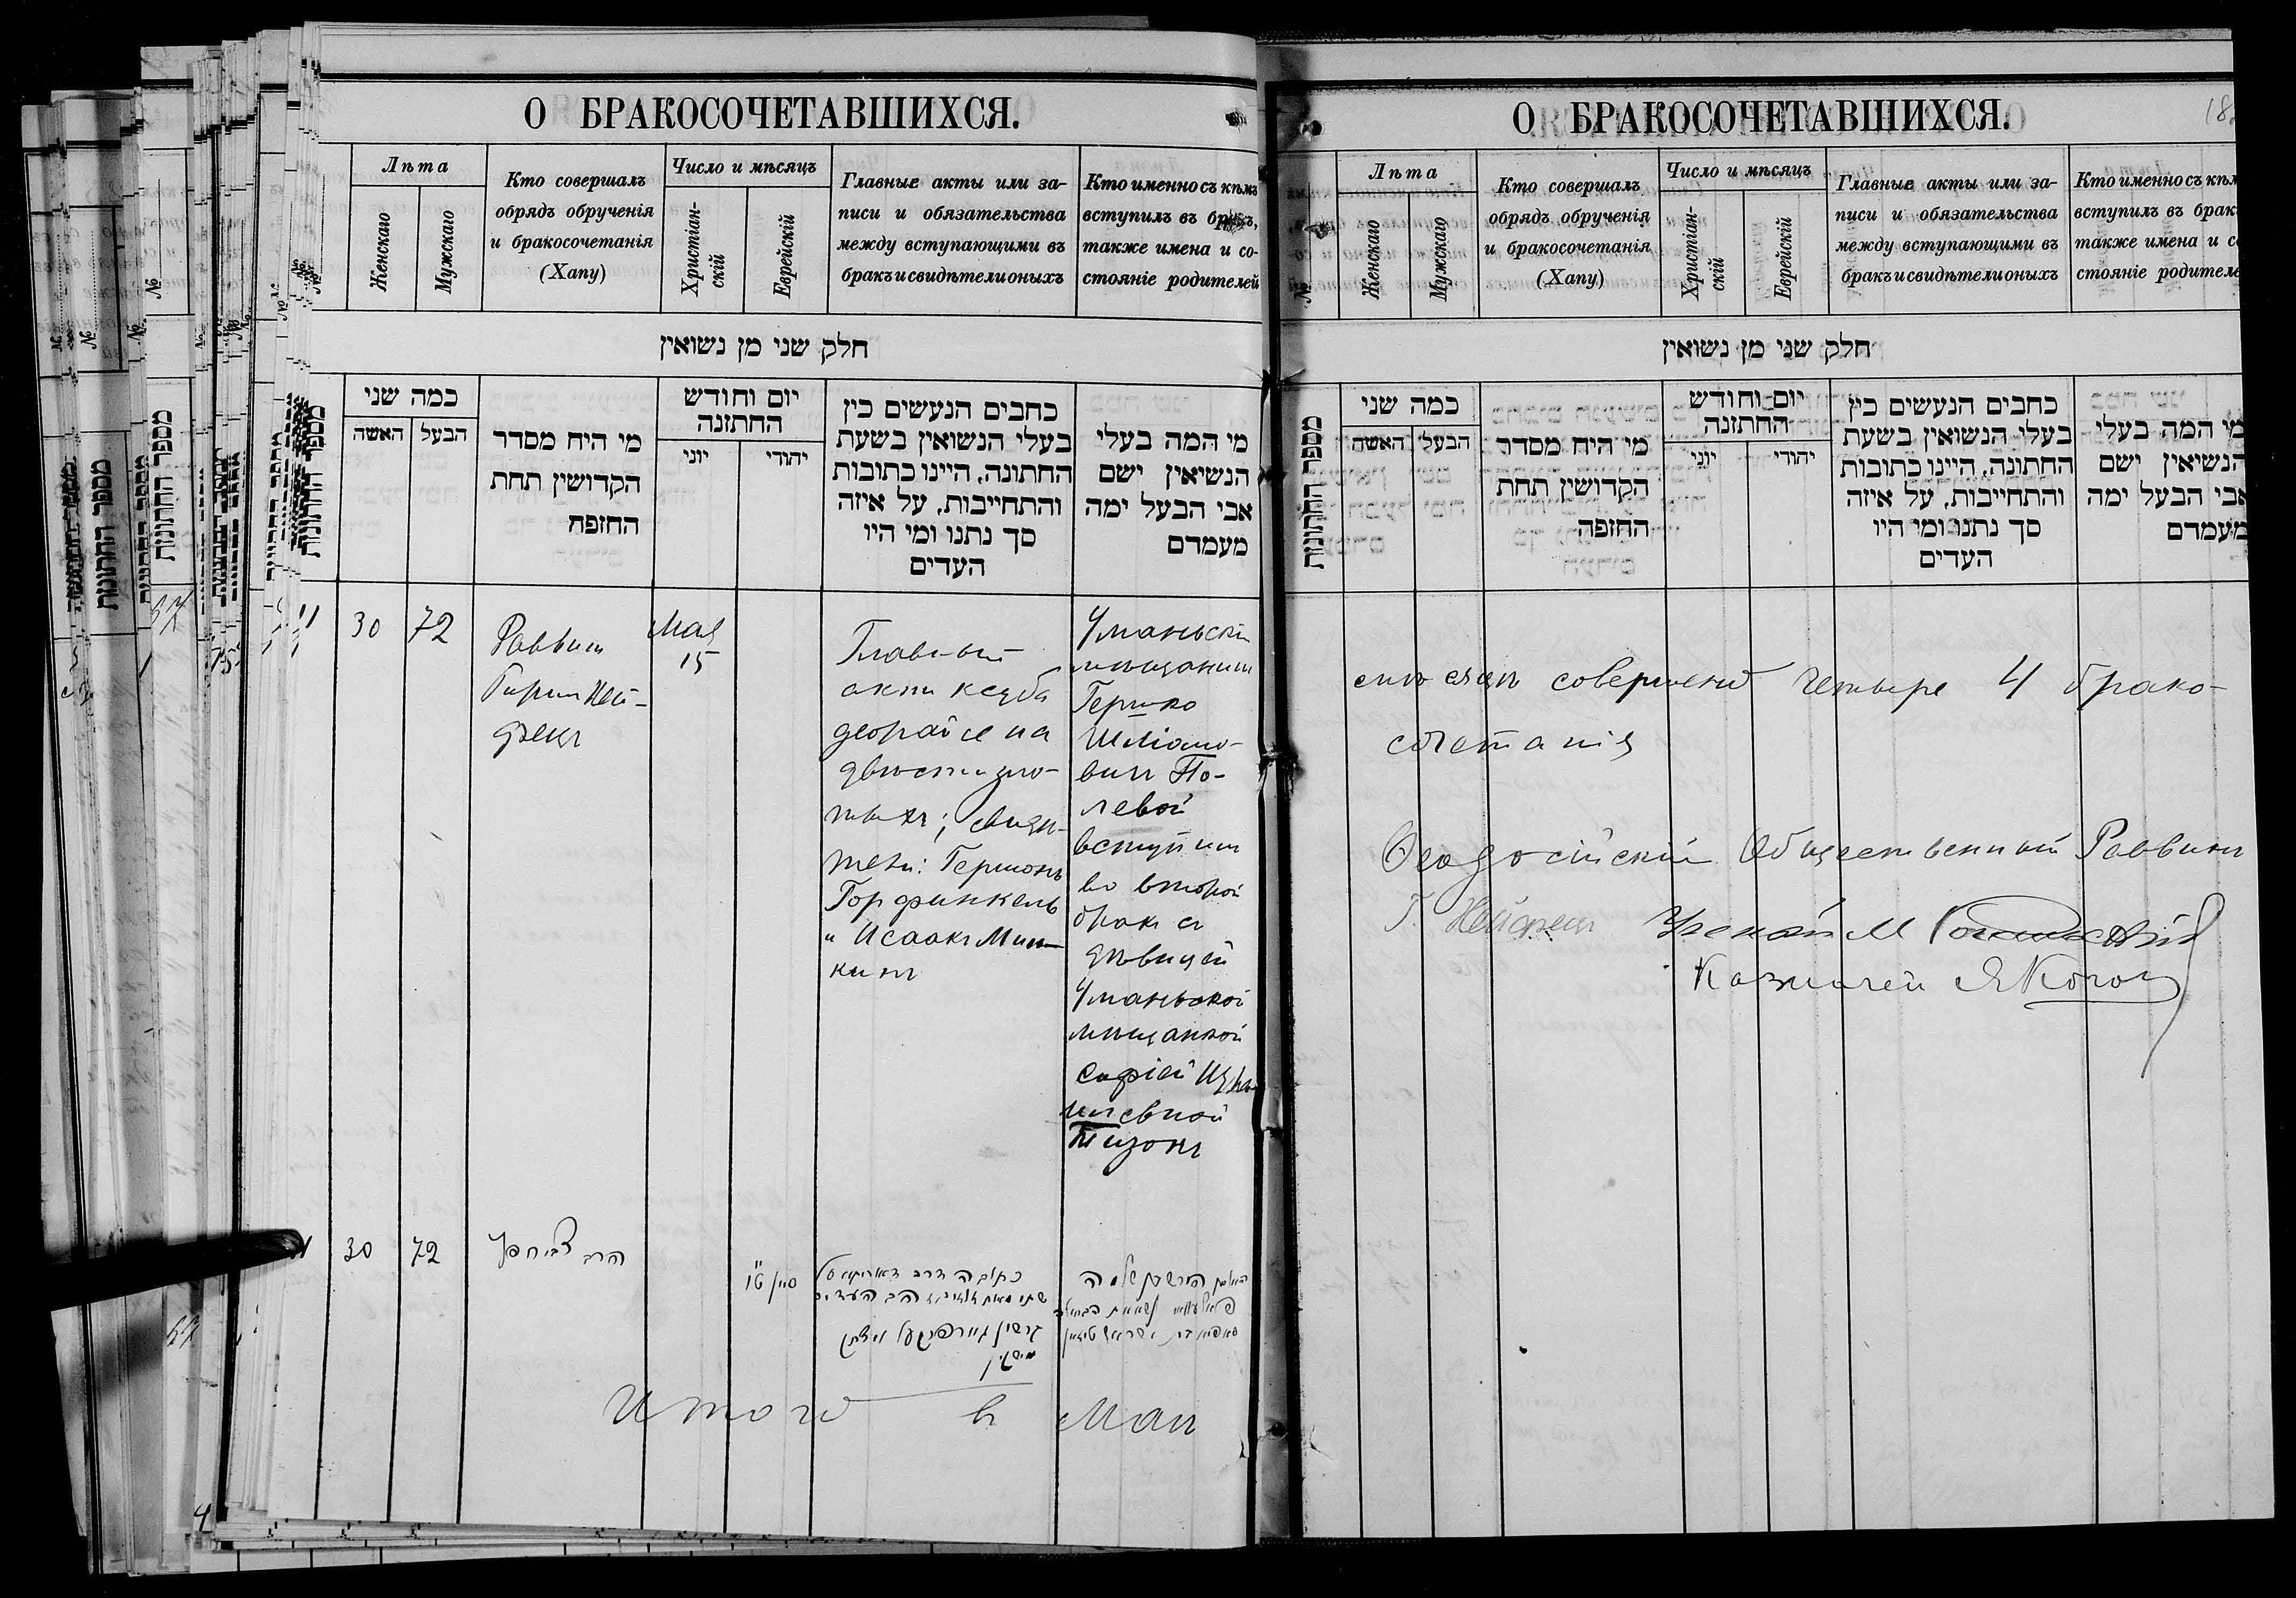 О БРАКОСОЧЕТАВШИХСЯ.
№
Лѣта
Женскаго
Мужскаго
Кто совершалъ
обрядъ обрученія
и бракосочетанія
(Хапу)
Число и мѣсяцъ
Христіан-
скій
Еврейскій
Главные акты или за-
писи и обязательства
между вступающими въ
бракъ и свидѣтели оныхъ
Кто именно съ кѣмъ
вступилъ въ бракъ,
также имена и со-
стояніе родителей
חלק שני מן נשואין
מספר החתונות
כמה שני
האשה
הבעל
מי היח מסדר
הקדושין תחת
החזפח
יום וחודש
החתזנה
יוני
יהודי
כחבים הנעשים כין
בעלי הנשואין בשעת
החתונה, היינו כתובות
והתחייבות, על איזה
סך נתנו ומי היו
העדים
מי המה בעלי
הנשיאין ישם
אבי הבעל ימה
מעמדם
11
30
72
Раввинъ
Гирш Ней-
фехъ
Мая
15
Главный
актъ ксуба
деорайсе на
двѣсти зло-
тыхъ; свидѣ-
тели: Гершонъ
Горфинкель
и Исаакъ Мин-
кинъ
Уманьскій
мѣщанинъ
Гершко
Шліомо-
вичъ По-
левой
вступилъ
во второй
бракъ съ
дѣвицей
Уманьской
мѣщанкой
Софіей Изра-
илевной
Тизонъ
30
72
הרב
סיון ט״ו
כתובה דרב דאורייתא על
Итого въ Маѣ
О БРАКОСОЧЕТАВШИХСЯ.
18
№
Лѣта
Женскаго
Мужскаго
Кто совершалъ
обрядъ обрученія
и бракосочетанія
(Хапу)
Число и мѣсяцъ
Христіан-
скій
Еврейскій
Главные акты или за-
писи и обязательства
между вступающими въ
бракъ и свидѣтели оныхъ
Кто именно съ кѣм
вступилъ въ брак
также имена и с
стояніе родителе
חלק שני מן נשואין
מספר החתונות
כמה שני
האשה
הבעל
מי היח מסדר
הקדושין תחת
החזפה
יום וחודש
החתזנה
יוני
יהודי
כחבים הנעשים כין
בעלי הנשואין בשעת
החתונה, היינו כתובות
והתחייבות, על איזה
סך נתנו ומי היו
העדים
מי המה בעלי
הנשיאין ישם
אבי הבעל ימה
מעמדם
мѣсяцѣ совершено четыре 4 брако-
сочетанія
Ѳеодосійскій Общественный Раввинъ
Г. Нейфехъ
Ученый М
Казначей Я Коган